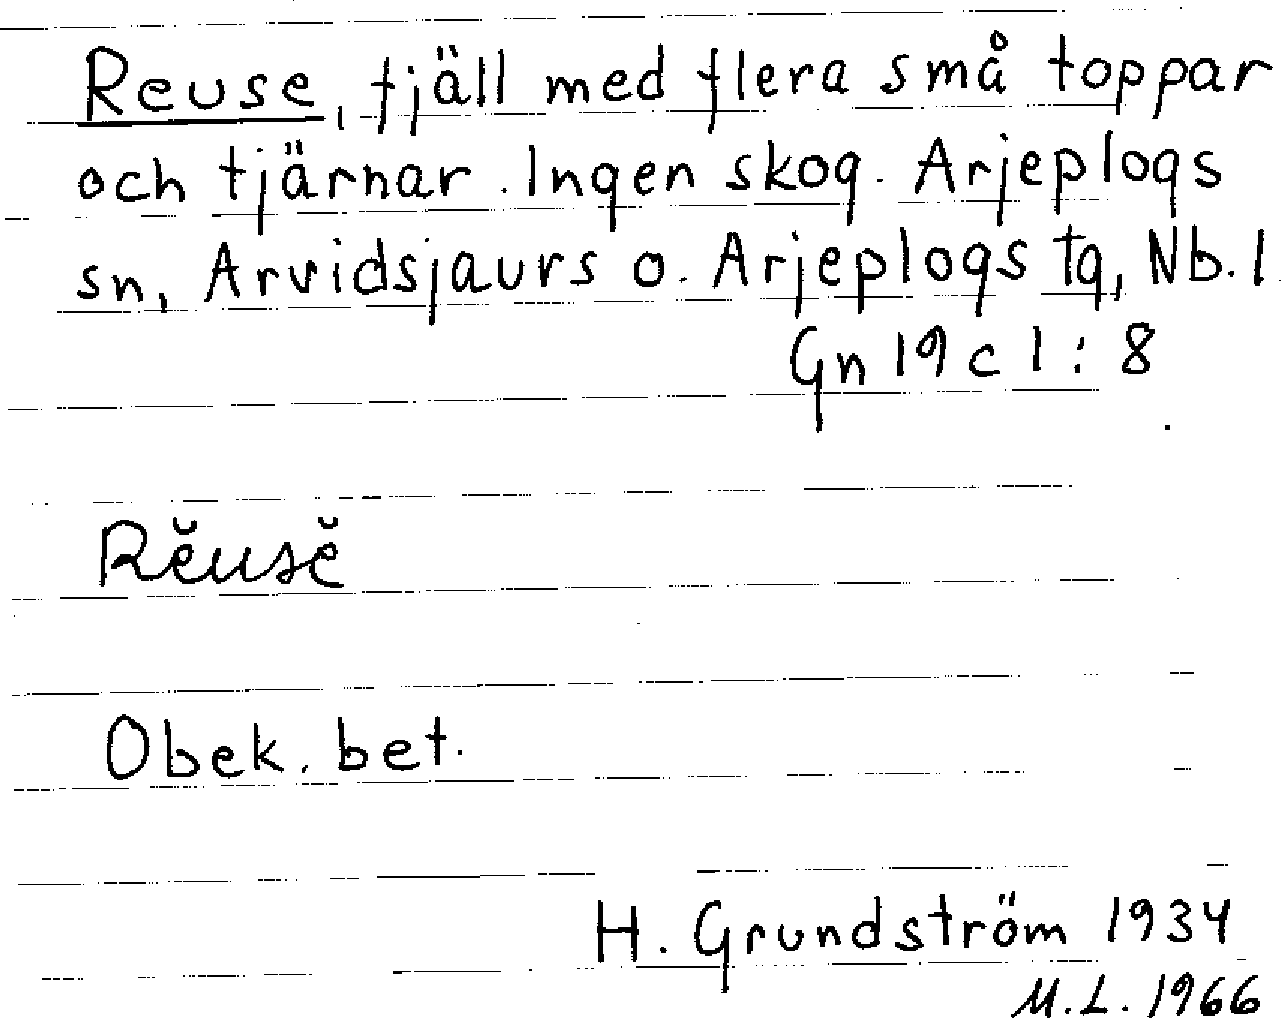 Reuse, fjäll med flera små toppar
och tjärnar. Ingen skog. Arjeplogs
sn, Arvidsjaurs o. Arjeplogs tg, Nb. l
Gn 19 c 1 : 8
Rĕusĕ
Obek. bet.
H. Grundström 1934
M.L. 1966